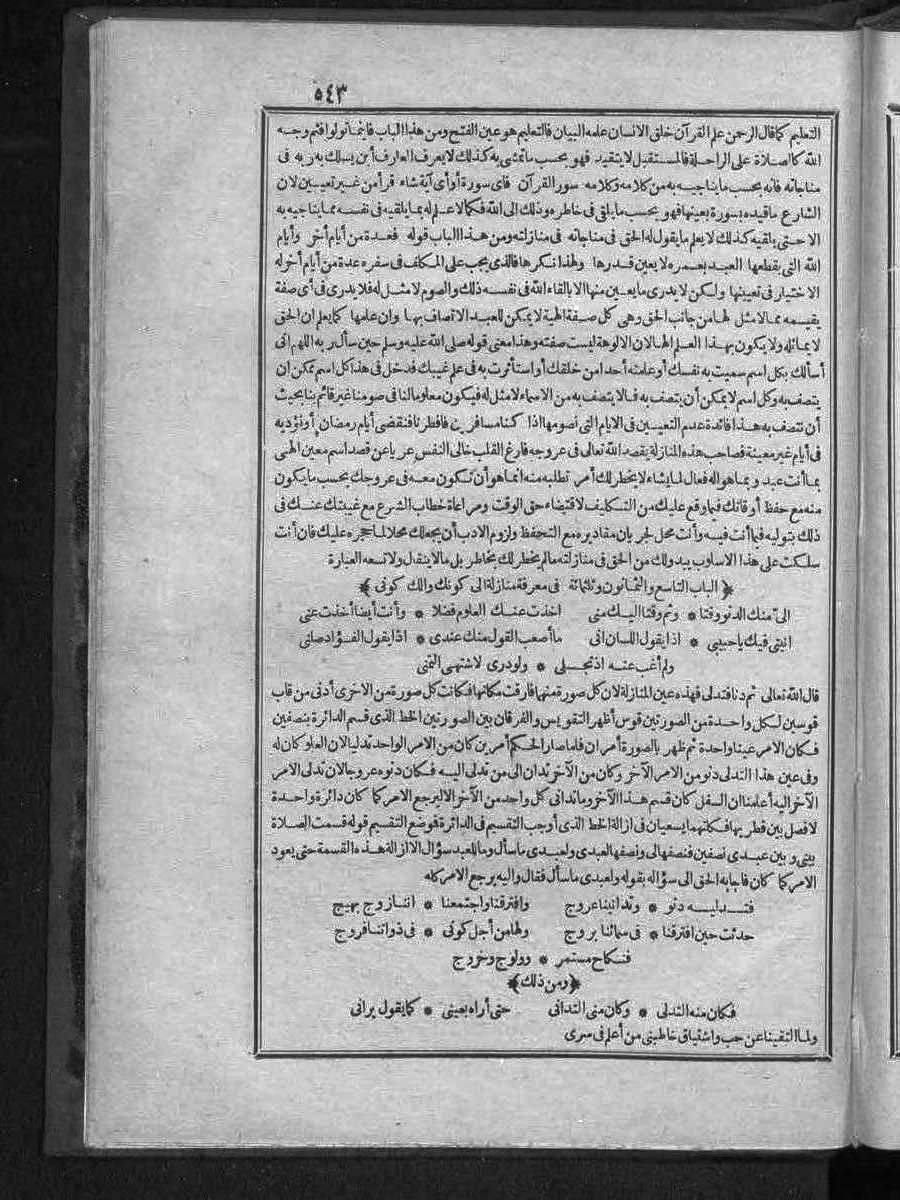 ٥٤٣
التعليم كما قال الرحمن علم القرآن خلق الانسان علمه البيان فالتعليم هو عين الفتح ومن هذا الباب فاينما تولوا فثم وجه
الله كالصلاة على الراحلة فالمستقبل لا يتقيد فهو بحسب ما تمشى به كذلك لا يعرف العارف أين يسلك به ربه فى
مناجاته فانه بحسب ما يناجيه به من كلامه وكلامه سور القرآن فاى سورة أو أى آية شاء قرأ من غير تعيين لان
الشارع ما قيده بسورة بعينها فهو بحسب ما يلقى فى خاطره وذلك الى الله فكما لا علم له بما يلقيه فى نفسه مما يناجيه به
الا حتى يلقيه كذلك لا يعلم ما يقول له الحق فى مناجاته فى منازلته ومن هذا الباب قوله فعدة من أيام أخر وأيام
الله التى يقطعها العبد بعمره لا يعين قدرها ولهذا نكرها فالذى يجب على المكلف فى سفره عدة من أيام أخر له
الاختيار فى تعيينها ولكن لا يدرى ما يعين منها الا بالقاء الله فى نفسه ذلك والصوم لا مثل له فلا يدرى فى أى صفة
يقيمه مما لا مثل لها من جانب الحق وهى كل صفة الهية لا يمكن للعبد الاتصاف بها وان علمها كما يعلم ان الحق
لا يماثله ولا يكون بهذا العلم الها لان الالوهة ليست صفته وهذا معنى قوله صلى الله عليه وسلم حين سأل ربه اللهم انى
أسألك بكل اسم سميت به نفسك أو علمته أحدا من خلقك أو استأثرت به فى علم غيبك فدخل فى هذا كل اسم ممكن ان
يتصف به وكل اسم لا يمكن أن يتصف به فما لا يتصف به من الاسماء لا مثل له فيكون معلوما لنا فى صومنا غير قائم بنا بحيث
أن نتصف به هذا فائدة عدم التعيين فى الايام التى أصومها اذا كنا مسافرين فافطرنا فنقضى أيام رمضان أو نؤديه
فى أيام غير معينة فصاحب هذه المنازلة يقصد الله تعالى فى عروجه فارغ القلب خالى النفس عريا عن قصد اسم معين الهى
بما أنت عبد وبما هو اله فعال لما يشاء لا يخطر لك أمر تطلبه منه انما هو أن تكون معه فى عروجك بحسب ما يكون
منه مع حفظ أوقاتك فيما وقع عليك من التكليف لاقتضاء حق الوقت ومراعاة خطاب الشرع مع غيبتك عنك فى
ذلك بتوليه فيما أنت فيه وأنت محل لجريان مقاديره مع التحفظ ولزوم الادب أن يجعلك محلا لما حجره عليك فان أنت
سلكت على هذا الاسلوب يبدو لك من الحق فى منازلته ما لم يخطر لك بخاطر بل ما لا ينقال ولا تسعه العبارة
﴿الباب التاسع والثمانون وثلثمائة فى معرفة منازلة الى كونك ولك كونى﴾
الىّ منك الدنو وقتا * وثم وقتا اليك منى اخذت عنك العلوم فضلا * وأنت أيضا أخذت عنى
انيتى فيك يا حبيبى * اذا يقول اللسان انى ما أصعب القول منك عندى * اذا يقول الفؤاد صلنى
ولم أغب عنه اذ تجلى * ولو درى لاشتهى التمنى
قال الله تعالى ثم دنا فتدلى فهذه عين المنازلة لان كل صورة منهما فارقت مكانها فكانت كل صورة من الاخرى أدنى من قاب
قوسين لكل واحدة من الصورتين قوس أظهر التقويس والفرقان بين الصورتين الخط الذى قسم الدائرة بنصفين
فكان الامر عينا واحدة ثم ظهر بالصورة أمران فلما صار الحكم أمرين كان من الامر الواحد تدليا لان العلو كان له
وفى عين هذا التدلى دنو من الامر الآخر وكان من الآخر تدان الى من تدلى اليه فكان دنوه عروجا لان تدلى الامر
الآخر اليه أعلمنا ان السفل كان قسم هذا الآخر وما تدانى كل واحد من الآخر الا ليرجع الامر كما كان دائرة واحدة
لا فصل بين قطريها فكلهما يسعيان فى ازالة الخط الذى أوجب التقسيم فى الدائرة فوضع التقسيم قوله قسمت الصلاة
بينى وبين عبدى نصفين فنصفها لى ونصفها لعبدى ولعبدى ما سأل وما للعبد سؤال الا ازالة هذه القسمة حتى يعود
الامر كما كان فاجابه الحق الى سؤاله بقوله ولعبدى ما سأل فقال واليه يرجع الامر كله
فتدليه دنو * وتدانينا عروج وافترقنا واجتمعنا * اننا زوج بهيج
حدثت حين افترقنا * فى سمائنا بروج ولها من أجل كونى * فى ذواتنا فروج
فنكاح مستمر * وولوج وخروج
﴿ومن ذلك﴾
فكان منه التدلى * وكان منى التدانى حتى أراه بعينى * كما يقول يرانى
ولما التقينا عن حب واشتياق خاطبنى من أعلم فى سرى